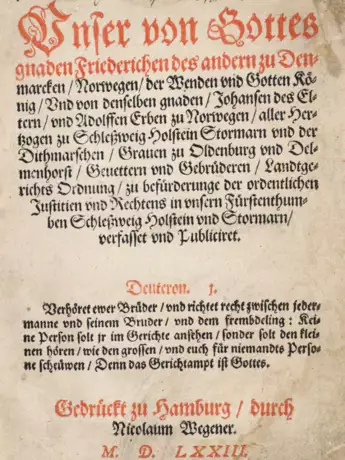 Vnser von Gottes
gnaden Friederichen des andern zu Den-
marcken / Norwegen / der Wenden vnd Gotten Kö-
nig / Vnd von denselben gnaden / Johansen des El-
tern / vnd Adolffen Erben zu Norwegen / aller Her-
tzogen zu Schleßweig Holstein Stormarn vnd der
Dithmarschen / Grauen zu Oldenburg vnd Del-
menhorst / Geuettern vnd Gebrüderen / Landtge-
richts Ordnung / zu befürderunge der ordentlichen
Justitien vnd Rechtens in vnsern Fürstenthum-
ben Schleßweig Holstein vnd Stormarn /
verfasset vnd Publiciret.
Deuteron. 1.
Verhöret ewer Brüder / vnd richtet recht zwischen jeder-
manne vnd seinem Bruder / vnd dem frembdeling : Kei-
ne Person solt jr im Gerichte ansehen / sonder solt den klei-
nen hören / wie den grossen / vnd euch für niemandts Perso-
ne schewen / Denn das Gerichtampt ist Gottes.
Gedrückt zu Hamburg / durch
Nicolaum Wegener.
M. D. LXXIII.